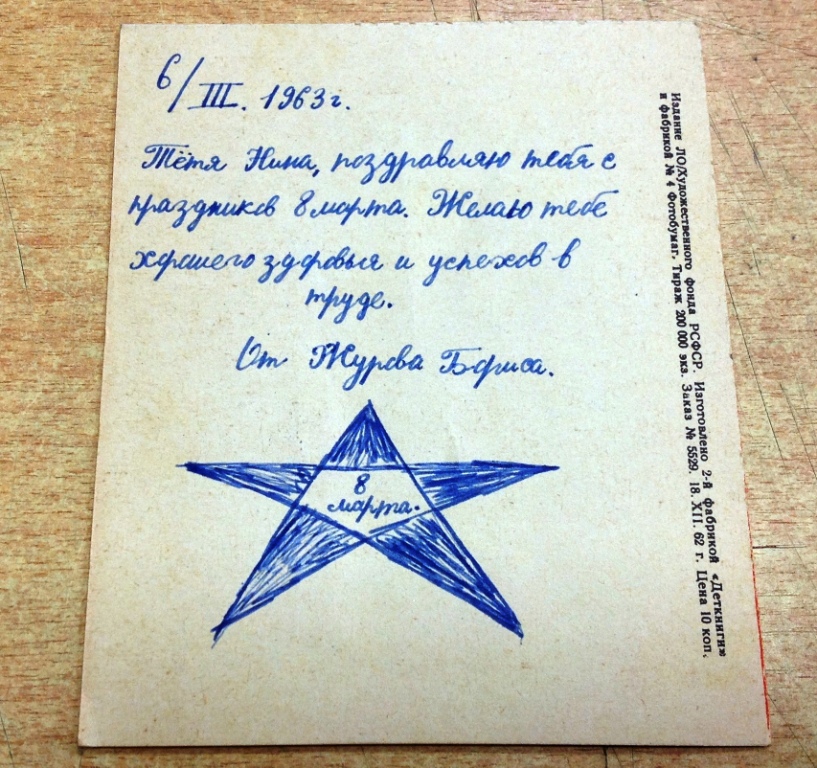 6/III. 1963 г.
Тётя Нина, поздравляю тебя с
праздником 8 марта. Желаю тебе
хорошего здоровья и успехов в
труде.
От Журова Бориса.
8
марта.
Издание ЛО/Художественного фонда РСФСР. Изготовлено 2-й фабрикой «Деткниги»
и фабрикой № 4 Фотобумаг. Тираж 200 000 экз. Заказ № 5529. 18. XII. 62 г. Цена 10 коп.